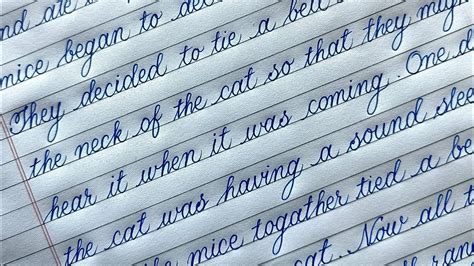 nd ate
mice began to dec
They decided to tie a bell
the neck of the cat so that they migh
hear it when it was coming. One d
the cat was having a sound slee
mice togather tied a be
cat.. Now all t
ran